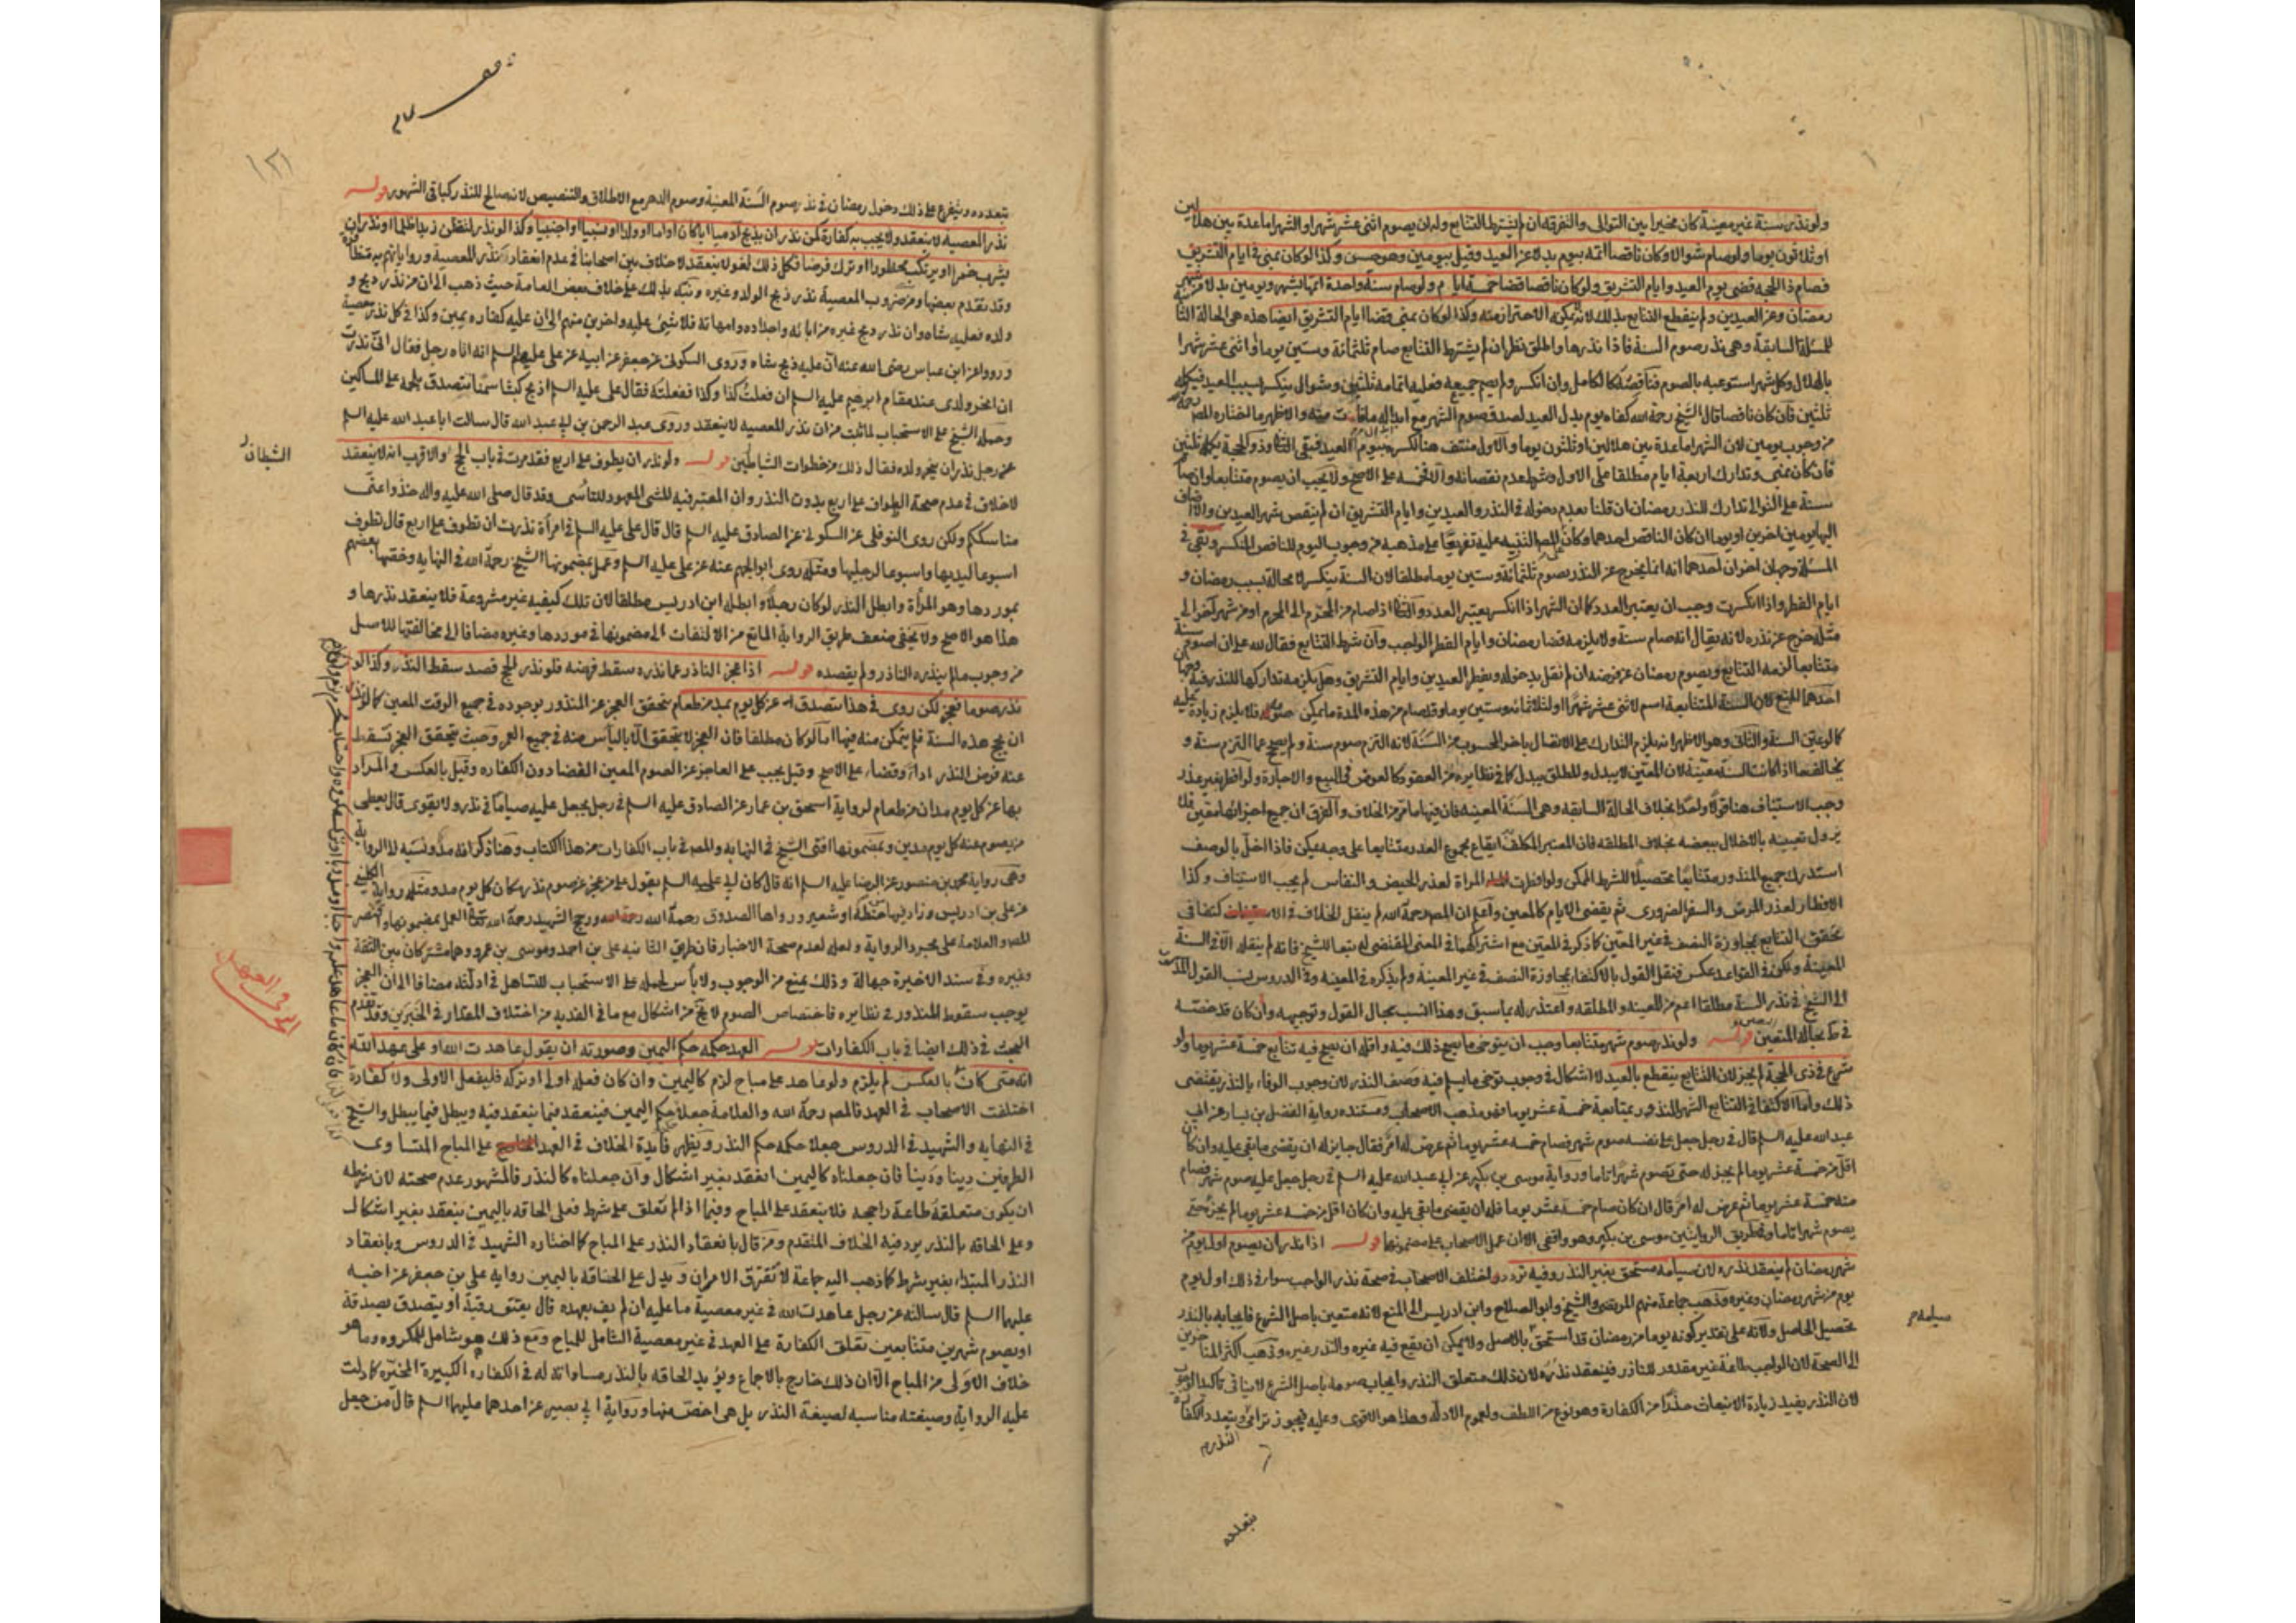 ولو نذر سنة غير معينة كان مخيرا بين التوالى والتفرقة ان لم يشترط التتابع وله ان يصوم اثنى عشر شهرا والشهر اما عدة بين هلالين
او ثلاثون يوما ولو صام شوالا وكان ناقصا اتمه بيوم بدلا عن العيد وقيل بيومين وهو حسن وكذا لو كان بمنى فى ايام التشريق
فصام ذا الحجه قضى يوم العيد وايام التشريق ولو كان ناقصا قضا خمسة ايام ولو صام سنة واحدة اتمها بشهر ويومين بدلا من شهر
رمضان وعن العيدين ولم ينقطع التتابع بذلك لانه لا يمكنه الاحتراز منه وكذا لو كان بمنى قضا ايام التشريق ايضا هذه هى الحالة الثا
للمسئلة السابقة وهى نذر صوم السنة فاذا نذرها واطلق نظر ان لم يشترط التتابع صام ثلثمائة وستين يوما او اثنى عشر شهرا
بالهلال وكل شهر استوعبه بالصوم فناقصه كالكامل وان انكسر ولم يصم جميعه فعليه اتمامه ثلثين وشوال ينكسر بسبب العيد فيكمله
ثلثين فان كان ناقصا قال الشيخ رحمة الله كفاه يوم بدل العيد لصدق صوم الشهر مع ابداله ما فات منه والاظهر ما اختاره المص رحمه
من وجوب يومين لان الشهر اما عدة بين هلالين او ثلثون يوما والاول منتف هنا لكسره بيوم العيد فبقى الثا وذو الحجة يكمله ثلثين
فان كان بمنى وتدارك اربعة ايام مطلقا على الاول وشرط عدم نقصانه والا فخمسة على الاصح ولا يجب ان يصوم متتابعا وان صام
سنة على التوالى تدارك للنذر رمضان ان قلنا بعدم دخوله فى النذر والعيدين وايام التشريق ان لم ينقص شهر العيدين والا اضاف
اليها يومين اخرين او يوما ان كان الناقص احدهما وكان على المص التنبيه عليه تفريعا على مذهبه من وجوب اليوم للناقص المنكسر وبقى فى
المسئلة وجهان اخران احدهما انه انما يخرج عن النذر بصوم ثلثمائة وستين يوما مطلقا لان السنة ينكسر لا محالة بسبب رمضان و
ايام الفطر واذا انكسرت وجب ان يعتبر العدد كما ان الشهر اذا انكسر يعتبر العدد والثا اذا صام من المحرم الى المحرم او من شهر اخر الى
مثله خرج عن نذره لانه يقال انه صام سنة ولا يلزمه قضا رمضان وايام الفطر الواجب وان شرط التتابع فقال لله على ان اصوم سنة
متتابعا لزمه التتابع ويصوم رمضان عن فرضه ان لم نقل بدخوله ويفطر العيدين وايام التشريق وهل يلزمه تداركها للنذر فيه وجهان
احدهما المنع لان السنة المتتابعة اسم لاثنى عشر شهرا او لثلاثمائة وستين يوما وقد صام من هذه المدة ما يمكن صومه فلا يلزم زيادة عليه
كالو عين السنة والثانى وهو الاظهر انه يلزم التدارك على الاتصال باخر المحسوب من السنة لانه التزم صوم سنة ولم يصح عما التزم سنة و
يخالف ما اذا كانت السنة معينة لان المعين لا يبدل والمطلق يبدل كما فى نظايره من العقود كالعوض فى البيع والاجارة ولو افطر بغير عذر
وجب الاستيناف هنا قولا واحدا بخلاف الحالة السابقه وهى السنة المعينه فان فيها ما مر من الخلاف والفرق ان جميع اجزائها معين فلا
يزول تعيينه بالاخلال ببعضه بخلاف المطلقه فان المعتبر المكلف ايقاع مجموع العدد متتابعا على وجه يمكن فاذا اخل بالوصف
استدرك جميع المنذور متتابعا تحصيلا للشرط الممكن ولو افطرت المراة لعذر الحيض والنفاس لم يجب الاستيناف وكذا
الافطار لعذر المرض والسفر الضرورى ثم يقضى الايام كالمعين واعلم ان المص رحمة الله لم ينقل الخلاف فى الاكتفا فى
تحقق التتابع بمجاوزة النصف فى غير المعين كما ذكر فى المعين مع اشتراكهما فى المعنى المقتضى له تبعا للشيخ فانه لم ينقله الا فى السنة
المعينة ولكن فى القواعد عكس فنقل القول بالاكتفاء بمجاوزة النصف فى غير المعينة ولم يذكره فى المعينه وفى الدروس نسب القول المذكور
الى الشيخ فى نذر السنة مطلقا اعم من المعينه والمطلقه واعتذر له بما سبق وهذا انسب بحال القول وتوجيهه وان كان قد خصته
فى ط بحالة التعين قوله ولو نذر صوم شهر متتابعا وجب ان يتوخى ما يصح ذلك فيه واقله ان يصح فيه تتابع خمسة عشر يوما ولو
شرع فى ذى الحجة لم يجز لان التتابع ينقطع بالعيد لا اشكال فى وجوب توخى ما يسلم فيه وصف النذر لان وجوب الوفاء بالنذر يقتضى
ذلك واما الاكتفا فى التتابع الشهر المنذور بمتابعة خمسة عشر يوما فهو مذهب الاصحاب ومستنده رواية الفضل بن يسار عن ابى
عبد الله عليه السلم قال فى رجل جعل على نفسه صوم شهر فصام خمسة عشر يوما ثم عرض له امر فقال جايز له ان يقضى ما بقى عليه وان كان
اقل من خمسة عشر يوما لم يجز له حتى يصوم شهرا تاما ورواية موسى بن بكير عن ابى عبد الله عليه السلم فى رجل جعل عليه صوم شهر فصام
منه خمسة عشر يوما ثم عرض له امر قال ان كان صام خمسة عشر يوما فله ان يقضى ما بقى عليه وان كان اقل من خمسة عشر يوما لم يجزه حتى
يصوم شهرا تاما وفى طريق الروايتين موسى بن بكير وهو واقفى الا ان عمل الاصحاب على مضمونها قوله اذا نذر ان يصوم اول يوم من
شهر رمضان لم ينعقد نذره لان صيامه مستحق بغير النذر وفيه تردد اختلف الاصحاب فى صحة نذر الواجب سوا فى ذلك اول يوم
يوم من شهر رمضان وغيره وذهب جماعة منهم المرتضى والشيخ وابو الصلاح وابن ادريس الى المنع لانه متعين باصل الشرع فايجابه بالنذر
تحصيل الحاصل ولانه على تقدير كونه يوما من رمضان قد استحق بالاصل ولا يمكن ان يقع فيه غيره والنذر غيره وذهب اكثر المتاخرين
الى الصحة لان الواجب طاعة غير مقدور للناذر فينعقد نذره لان ذلك متعلق النذر وايجاب صومه باصل الشرع لا ينافى تاكيد الوجوب
لان النذر يفيد زيادة الانبعاث حذرا من الكفارة وهو نوع من اللطف ولعموم الادله وهذا هو الاقوى وعليه فيجوز ترامى النذر ويتعدد الكفارة
بتعدده
يتعدده ويتفرع على ذلك دخول رمضان فى نذر صوم السنة المعينة وصوم الدهر مع الاطلاق والتنصيص لانه صالح للنذر كباقى الشهور قوله
نذر المعصيه لا ينعقد ولا يجب به كفارة كمن نذر ان يذبح آدميا ابا كان او اما او ولدا او نسيبا او اجنبيا وكذا لو نذر ليقتلن زيدا ظلما او نذر ان
يشرب خمرا او يرتكب محظورا او ترك فرضا فكل ذلك لغو لا ينعقد لا خلاف بين اصحابنا فى عدم انعقاد نذر المعصية ورواياتهم به متظافرة
وقد تقدم بعضها ومن ضروب المعصية نذر ذبح الولد وغيره ونبه بذلك على خلاف بعض العامة حيث ذهب الى ان من نذر ذبح و
ولده فعليه شاه وان نذر ذبح غيره من ابائه واجداده وامهاته فلا شئ عليه واخرين منهم الى ان عليه كفاره يمين وكذا فى كل نذر معصية
ورووا عن ابن عباس رضى الله عنه ان عليه ذبح شاه وروى السكونى عن جعفر عن ابيه عن على عليهم السلم انه اتاه رجل فقال انى نذرت
ان انحر ولدى عند مقام ابرهيم عليه السلم ان فعلت كذا وكذا ففعلته فقال على عليه السلم اذبح كبشا سمينا تتصدق بلحمه على المساكين
وحمله الشيخ على الاستحباب لما ثبت من ان نذر المعصيه لا ينعقد وروى عبد الرحمن بن ابى عبد الله قال سالت ابا عبد الله عليه السلم
عن رجل نذر ان ينحر ولده فقال ذلك من خطوات الشياطين قوله ولو نذر ان يطوف على اربع فقد مرت فى باب الحج والاقرب انه لا ينعقد
الشيطان ر
لا خلاف فى عدم صحة الطواف على اربع بدون النذر وان المعتبر فيه للشى المعهود للتاسى وقد قال صلى الله عليه واله خذوا عنى
مناسككم ولكن روى النوفلى عن السكونى عن الصادق عليه السلم قال قال على عليه السلم فى امرأة نذرت ان تطوف على اربع قال تطوف
اسبوعا ليديها واسبوعا لرجليها ومثله روى ابو الجهم عنه عن على عليه السلم وعمل بمضمونها الشيخ رحمة الله فى النهايه وخصها بعضهم
بموردها وهو المرأة وابطل النذر لو كان رجلا وابطله ابن ادريس مطلقا لان تلك كيفيه غير مشروعة فلا ينعقد نذرها و
هذا هو الاصح ولا يخفى ضعف طريق الرواية المانع من الالتفات الى مضمونها فى موردها وغيره مضافا الى مخالفتها للاصل
من وجوب ما لم ينذره الناذر ولم يقصده قوله اذا عجز الناذر عما نذره سقط فرضه فلو نذر الحج فصد سقط النذر وكذا لو
نذر صوما فعجز لكن روى فى هذا يتصدق عن كل يوم بمد من طعام يتحقق العجز عن المنذور بوجوده فى جميع الوقت المعين كما لو نذر
ان يحج هذه السنة فلم يتمكن منه فيها اما لو كان مطلقا فان العجز لا يتحقق الا باليأس منه فى جميع العمر وحيث يتحقق العجز تسقط
عنه فرض النذر اداء وقضاء على الاصح وقيل يجب على العاجز عن الصوم المعين القضا دون الكفاره وقيل بالعكس والمراد
بها عن كل يوم مدان من طعام لرواية اسحق بن عمار عن الصادق عليه السلم فى رجل يجعل عليه صياما فى نذر ولا يقوى قال يعطى
من يصوم عنه كل يوم مدين وبمضمونها افتى الشيخ فى النهايه والمص فى باب الكفارات من هذا الكتاب وهنا ذكر انه مد ونسبه الى الرواية
وهى رواية محمد بن منصور عن الرضا عليه السلم انه قال كان ابى عليه السلم يقول على من عجز عن صوم نذر مكان كل يوم مد ومثله رواية الكلينى
عن على بن ادريس وزاد فيها من حنطة او شعير ورواها الصدوق رحمة الله ورجح الشهيد رحمة الله العمل بمضمونها واقتصر
المص والعلامة على مجرد الرواية ولعله لعدم صحة الاخبار فان طريق الثانيه على بن احمد وموسى بن عمر وهما مشتركان بين الثقة
وغيره وفى سند الاخيرة جهالة وذلك يمنع من الوجوب ولا بأس بحمله على الاستحباب للتساهل فى ادلته مضافا الى ان العجز
يوجب سقوط المنذور فى نظايره فاختصاص الصوم لا يخ من اشكال مع ما فى الفديه من اختلاف المقدار فى الخبرين وقد تقدم
البحث فى ذلك ايضا فى باب الكفارات قوله العهد حكمه حكم اليمين وصورته ان يقول عاهدت الله او على عهد الله
انه متى كان بالعكس لم يلزم ولو عاهد على مباح لزم كاليمين وان كان فعله اولى او تركه فليفعل الاولى ولا كفارة
اختلفت الاصحاب فى العهد فالمص رحمة الله والعلامة جعلا حكمه حكم اليمين فينعقد فيما ينعقد فيه ويبطل فيما يبطل والشيخ
فى النهايه والشهيد فى الدروس جعلا حكمه حكم النذر ويظهر فايدة الخلاف فى العهد على المباح المتساوى
الطرفين دينا ودنيا فان جعلناه كاليمين انعقد بغير اشكال وان جعلناه كالنذر فالمشهور عدم صحته لان شرطه
ان يكون متعلقه طاعة راجحه فلا ينعقد على المباح وفيما اذا لم تعلق على شرط فعلى الحاقه باليمين ينعقد بغير اشكال
وعلى الحاقه بالنذر يرد فيه الخلاف المتقدم ومن قال بانعقاد النذر على المباح كما اختاره الشهيد فى الدروس وبانعقاد
النذر المبتداء بغير شرط كما ذهب اليه جماعة لا تفترق الامران ويدل على الحاقه باليمين رواية على بن جعفر عن اخيه
عليهما السلم قال سالته عن رجل عاهدت الله فى غير معصية ما عليه ان لم يف بعهده قال يعتق رقبة او يتصدق بصدقة
او يصوم شهرين متتابعين تعلق الكفارة على العهد فى غير معصية الشامل للمباح ومع ذلك هو شامل للمكروه وما هو
خلاف الاولى من المباح الا ان ذلك خارج بالاجماع ويؤيد الحاقه بالنذر مساواته له فى الكفاره الكبيرة المخيره كما دلت
عليه الرواية وصيغته مناسبه لصيغة النذر بل هى اخص منها ورواية ابى بصير عن احدهما عليهما السلم قال من جعل